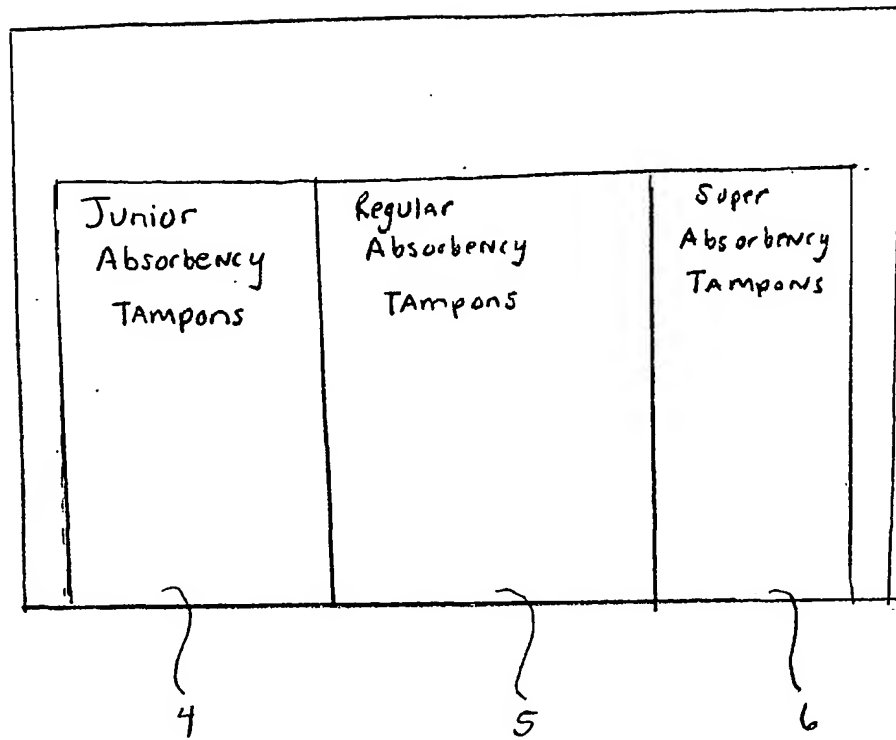 Junior
Absorbency
Tampons
Regular
Absorbency
Tampons
Super
Absorbency
Tampons
4
5
6